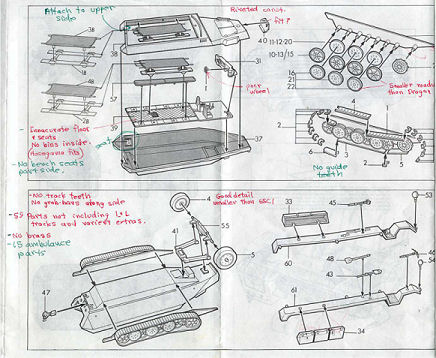 Attach to upper side
Riveted const.
fit?
38
28
18
48
28
57
39
40
31
37
11-12-20
10-13/15
16
21
22
poor wheel
Smaller road
than Dragon
- Inaccurate floor
+ seats
No bins inside.
(Hasegawa fits)
- No bench seats
part side.
seat
4
2
6
3
2
5
No guide
teeth
- No track teeth
No grab-bars along side
- 59 Parts not including L+L
tracks and varient extras.
- No brass
- 15 ambulance
parts
Good detail
smaller than SSC!
4
55
41
5
47
33
45
53
60
54
46
48
43
61
34